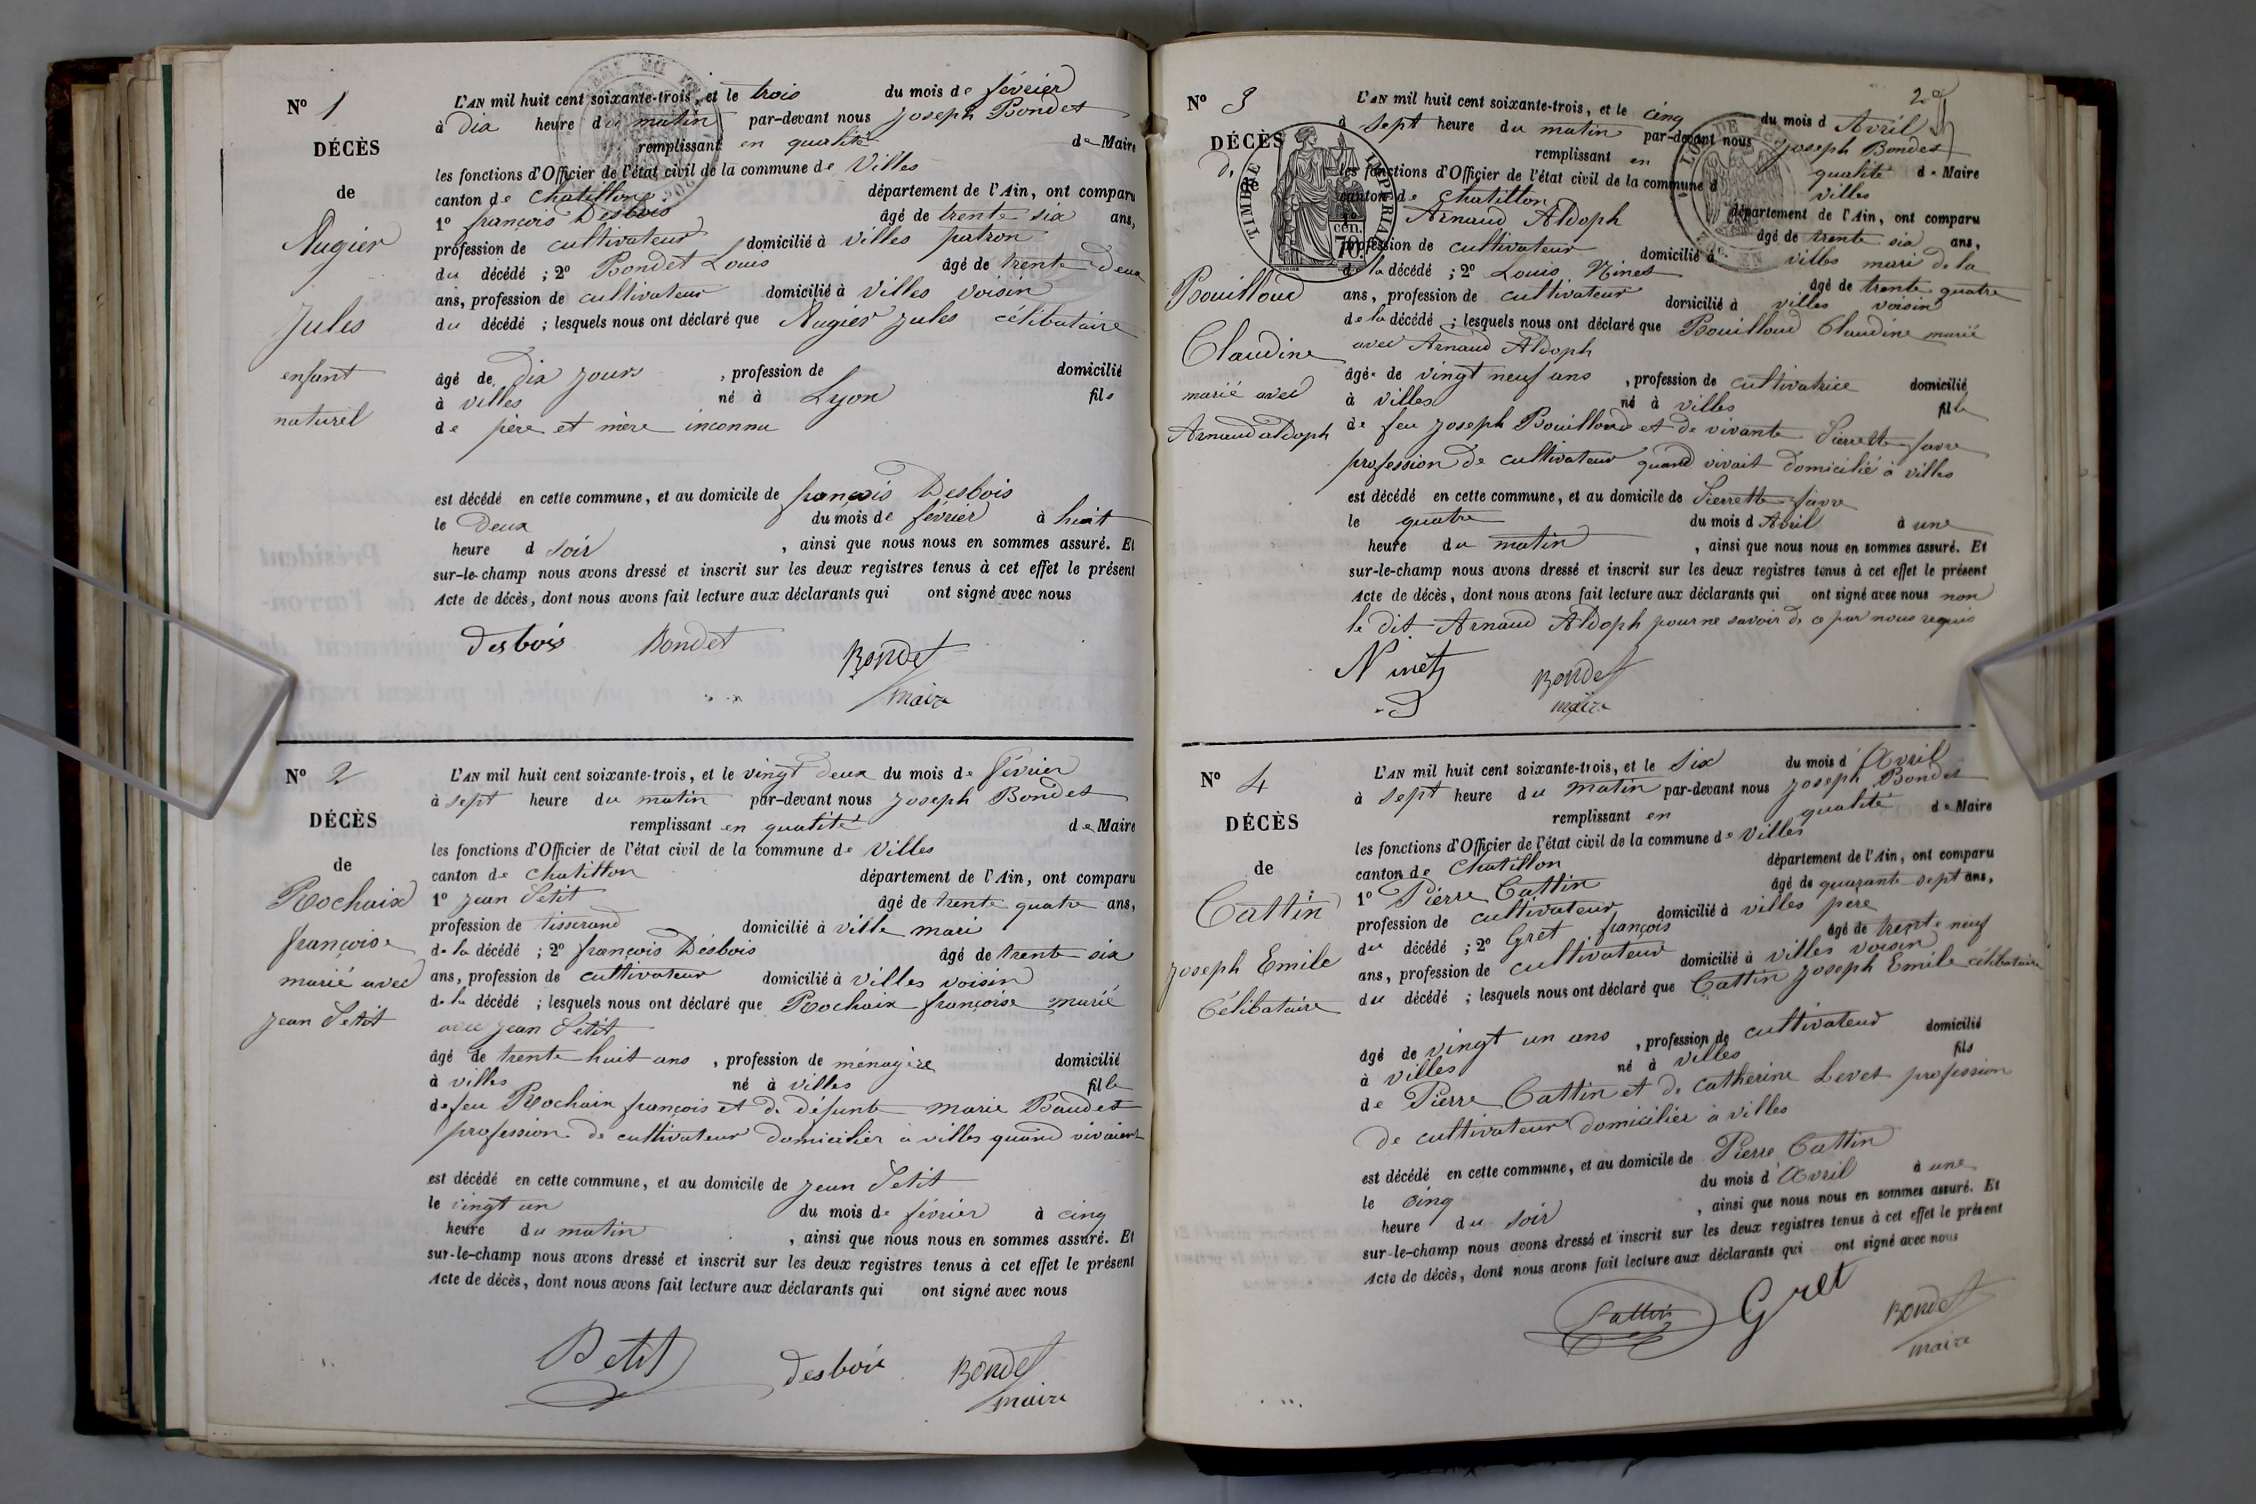 N° 1
DÉCÈS
de
Augier
Jules
enfant
naturel
L'AN mil huit cent soixante-trois, et le trois du mois de février
à dix heure du matin par-devant nous Joseph Bondet
remplissant en qualité de Maire
les fonctions d'Officier de l'état civil de la commune de Villes
canton de Chatillon département de l'Ain, ont comparu
1° françois Desbois âgé de trente six ans,
profession de cultivateur domicilié à villes patron
du décédé ; 2° Bondet Louis âgé de trente deux
ans, profession de cultivateur domicilié à villes voisin
du décédé ; lesquels nous ont déclaré que Augier Jules célibataire
âgé de dix jours , profession de domicilié
à villes né à Lyon fils
de père et mère inconnu
est décédé en cette commune, et au domicile de françois Desbois
le Deux du mois de février à huit
heure d soir , ainsi que nous nous en sommes assuré. Et
sur-le-champ nous avons dressé et inscrit sur les deux registres tenus à cet effet le présent
Acte de décès, dont nous avons fait lecture aux déclarants qui ont signé avec nous
desbois Bondet Bondet
maire
N° 2
DÉCÈS
de
Rochaix
françoise
marié avec
Jean Petit
L'AN mil huit cent soixante-trois, et le vingt deux du mois de février
à sept heure du matin par-devant nous Joseph Bondet
remplissant en qualité de Maire
les fonctions d'Officier de l'état civil de la commune de Villes
canton de Chatillon département de l'Ain, ont comparu
1° Jean Petit âgé de trente quatre ans,
profession de tisserand domicilié à ville mari
de la décédé ; 2° françois Desbois âgé de trente six
ans, profession de cultivateur domicilié à villes voisin
de la décédé ; lesquels nous ont déclaré que Rochaix françoise marié
avec Jean Petit
âgé de trente huit ans , profession de ménagère domicilié
à villes né à villes fille
de feu Rochaix françois et de défunte marie Baudet
profession de cultivateur domicilier à villes quand vivaient
est décédé en cette commune, et au domicile de Jean Petit
le vingt un du mois de février à cinq
heure du matin , ainsi que nous nous en sommes assuré. Et
sur-le-champ nous avons dressé et inscrit sur les deux registres tenus à cet effet le présent
Acte de décès, dont nous avons fait lecture aux déclarants qui ont signé avec nous
Petit desbois Bondet
maire
N° 3
DÉCÈS
de
TIMBRE IMPÉRIAL
cen.
70.
Bouilloud
Claudine
marié avec
Arnaud aldoph
L'AN mil huit cent soixante-trois, et le cinq du mois d Avril
à sept heure du matin par-devant nous Joseph Bondet
remplissant en qualité de Maire
les fonctions d'Officier de l'état civil de la commune d villes
canton de Chatillon département de l'Ain, ont comparu
1° Arnaud Aldoph âgé de trente six ans,
profession de cultivateur domicilié à villes mari de la
de la décédé ; 2° Louis Ninet âgé de trente quatre
ans, profession de cultivateur domicilié à villes voisin
de la décédé ; lesquels nous ont déclaré que Bouilloud Claudine marié
avec Arnaud Aldoph
âgé de vingt neuf ans , profession de cultivatrice domicilié
à villes né à villes fille
de feu Joseph Bouilloud et de vivante Pierrette favre
profession de cultivateur quand vivait domicilié à villes
est décédé en cette commune, et au domicile de Pierrette favre
le quatre du mois d Avril à une
heure du matin , ainsi que nous nous en sommes assuré. Et
sur-le-champ nous avons dressé et inscrit sur les deux registres tenus à cet effet le présent
Acte de décès, dont nous avons fait lecture aux déclarants qui ont signé avec nous non
le dit Arnaud Aldoph pour ne savoir de ce par nous requis
Ninet Bondet
maire
N° 4
DÉCÈS
de
Cattin
Joseph Emile
Célibataire
L'AN mil huit cent soixante-trois, et le six du mois d Avril
à sept heure du matin par-devant nous Joseph Bondet
remplissant en qualité de Maire
les fonctions d'Officier de l'état civil de la commune de villes
canton de Chatillon département de l'Ain, ont comparu
1° Pierre Cattin âgé de quarante sept ans,
profession de cultivateur domicilié à villes père
du décédé ; 2° Gret françois âgé de trente neuf
ans, profession de cultivateur domicilié à villes voisin
du décédé ; lesquels nous ont déclaré que Cattin Joseph Emile célibataire
âgé de vingt un ans , profession de cultivateur domicilié
à villes né à villes fils
de Pierre Cattin et de Catherine Levet profession
de cultivateur domicilier à villes
est décédé en cette commune, et au domicile de Pierre Cattin
le cinq du mois d Avril à une
heure du soir , ainsi que nous nous en sommes assuré. Et
sur-le-champ nous avons dressé et inscrit sur les deux registres tenus à cet effet le présent
Acte de décès, dont nous avons fait lecture aux déclarants qui ont signé avec nous
Cattin Gret Bondet
maire